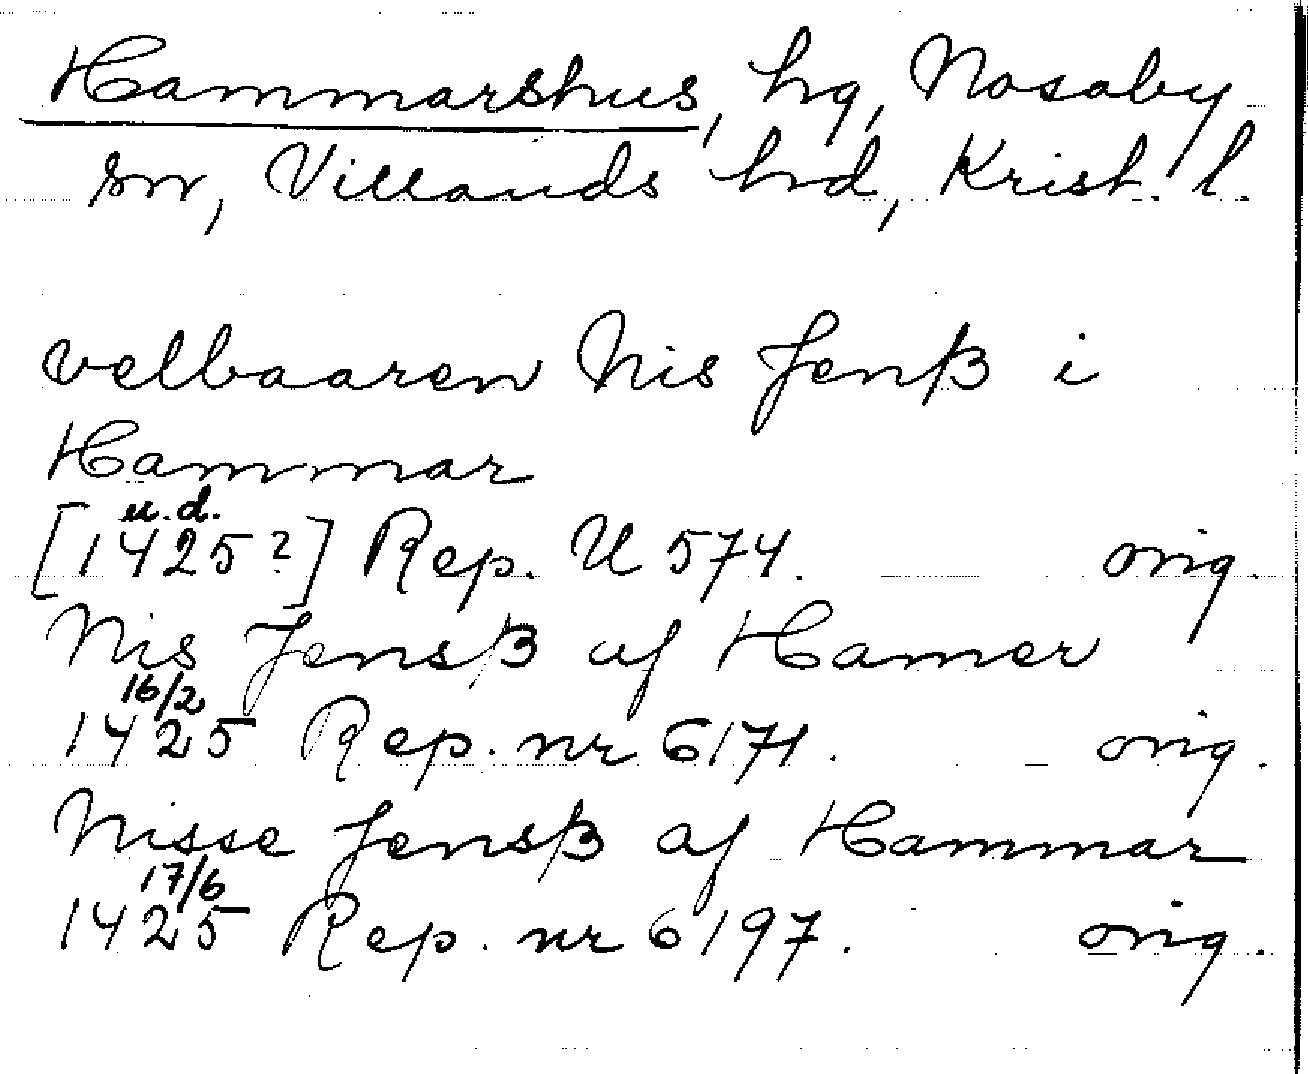 Hammarshus, hg, Nosaby
sn, Villands hd, Krist. l.
velbaaren Nis Jenß i
Hammar
u.d.
[1425?] Rep. U 574. orig.
Nis Jensß af Hamer
16/2
1425 Rep. nr 6171. orig.
Nisse Jensß af Hammar
17/6
1425 Rep. nr 6197. orig.